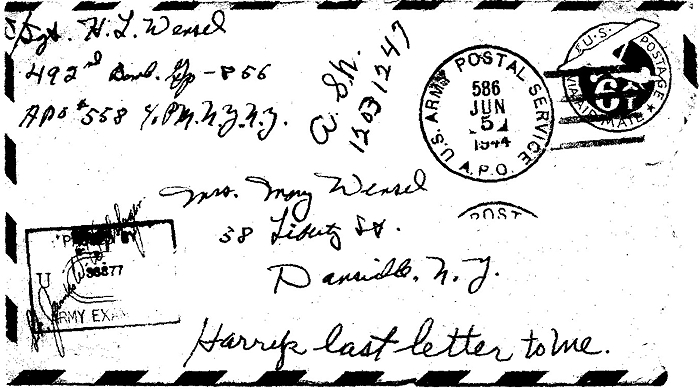 Sgt. H. L. Wensel
492nd Bomb. Gp - 856
APO #558 % P.M. N.Y. N.Y.
A. S. N.
12031247
U.S. ARMY POSTAL SERVICE
586
JUN
5
1944
A.P.O.
U.S. POSTAGE
VIA AIR MAIL
6¢
POST
Mrs. Mary Wensel
38 Liberty St.
Dansville, N.Y.
PASSED BY
U
36877
ARMY EXA
Harry's last letter to me.